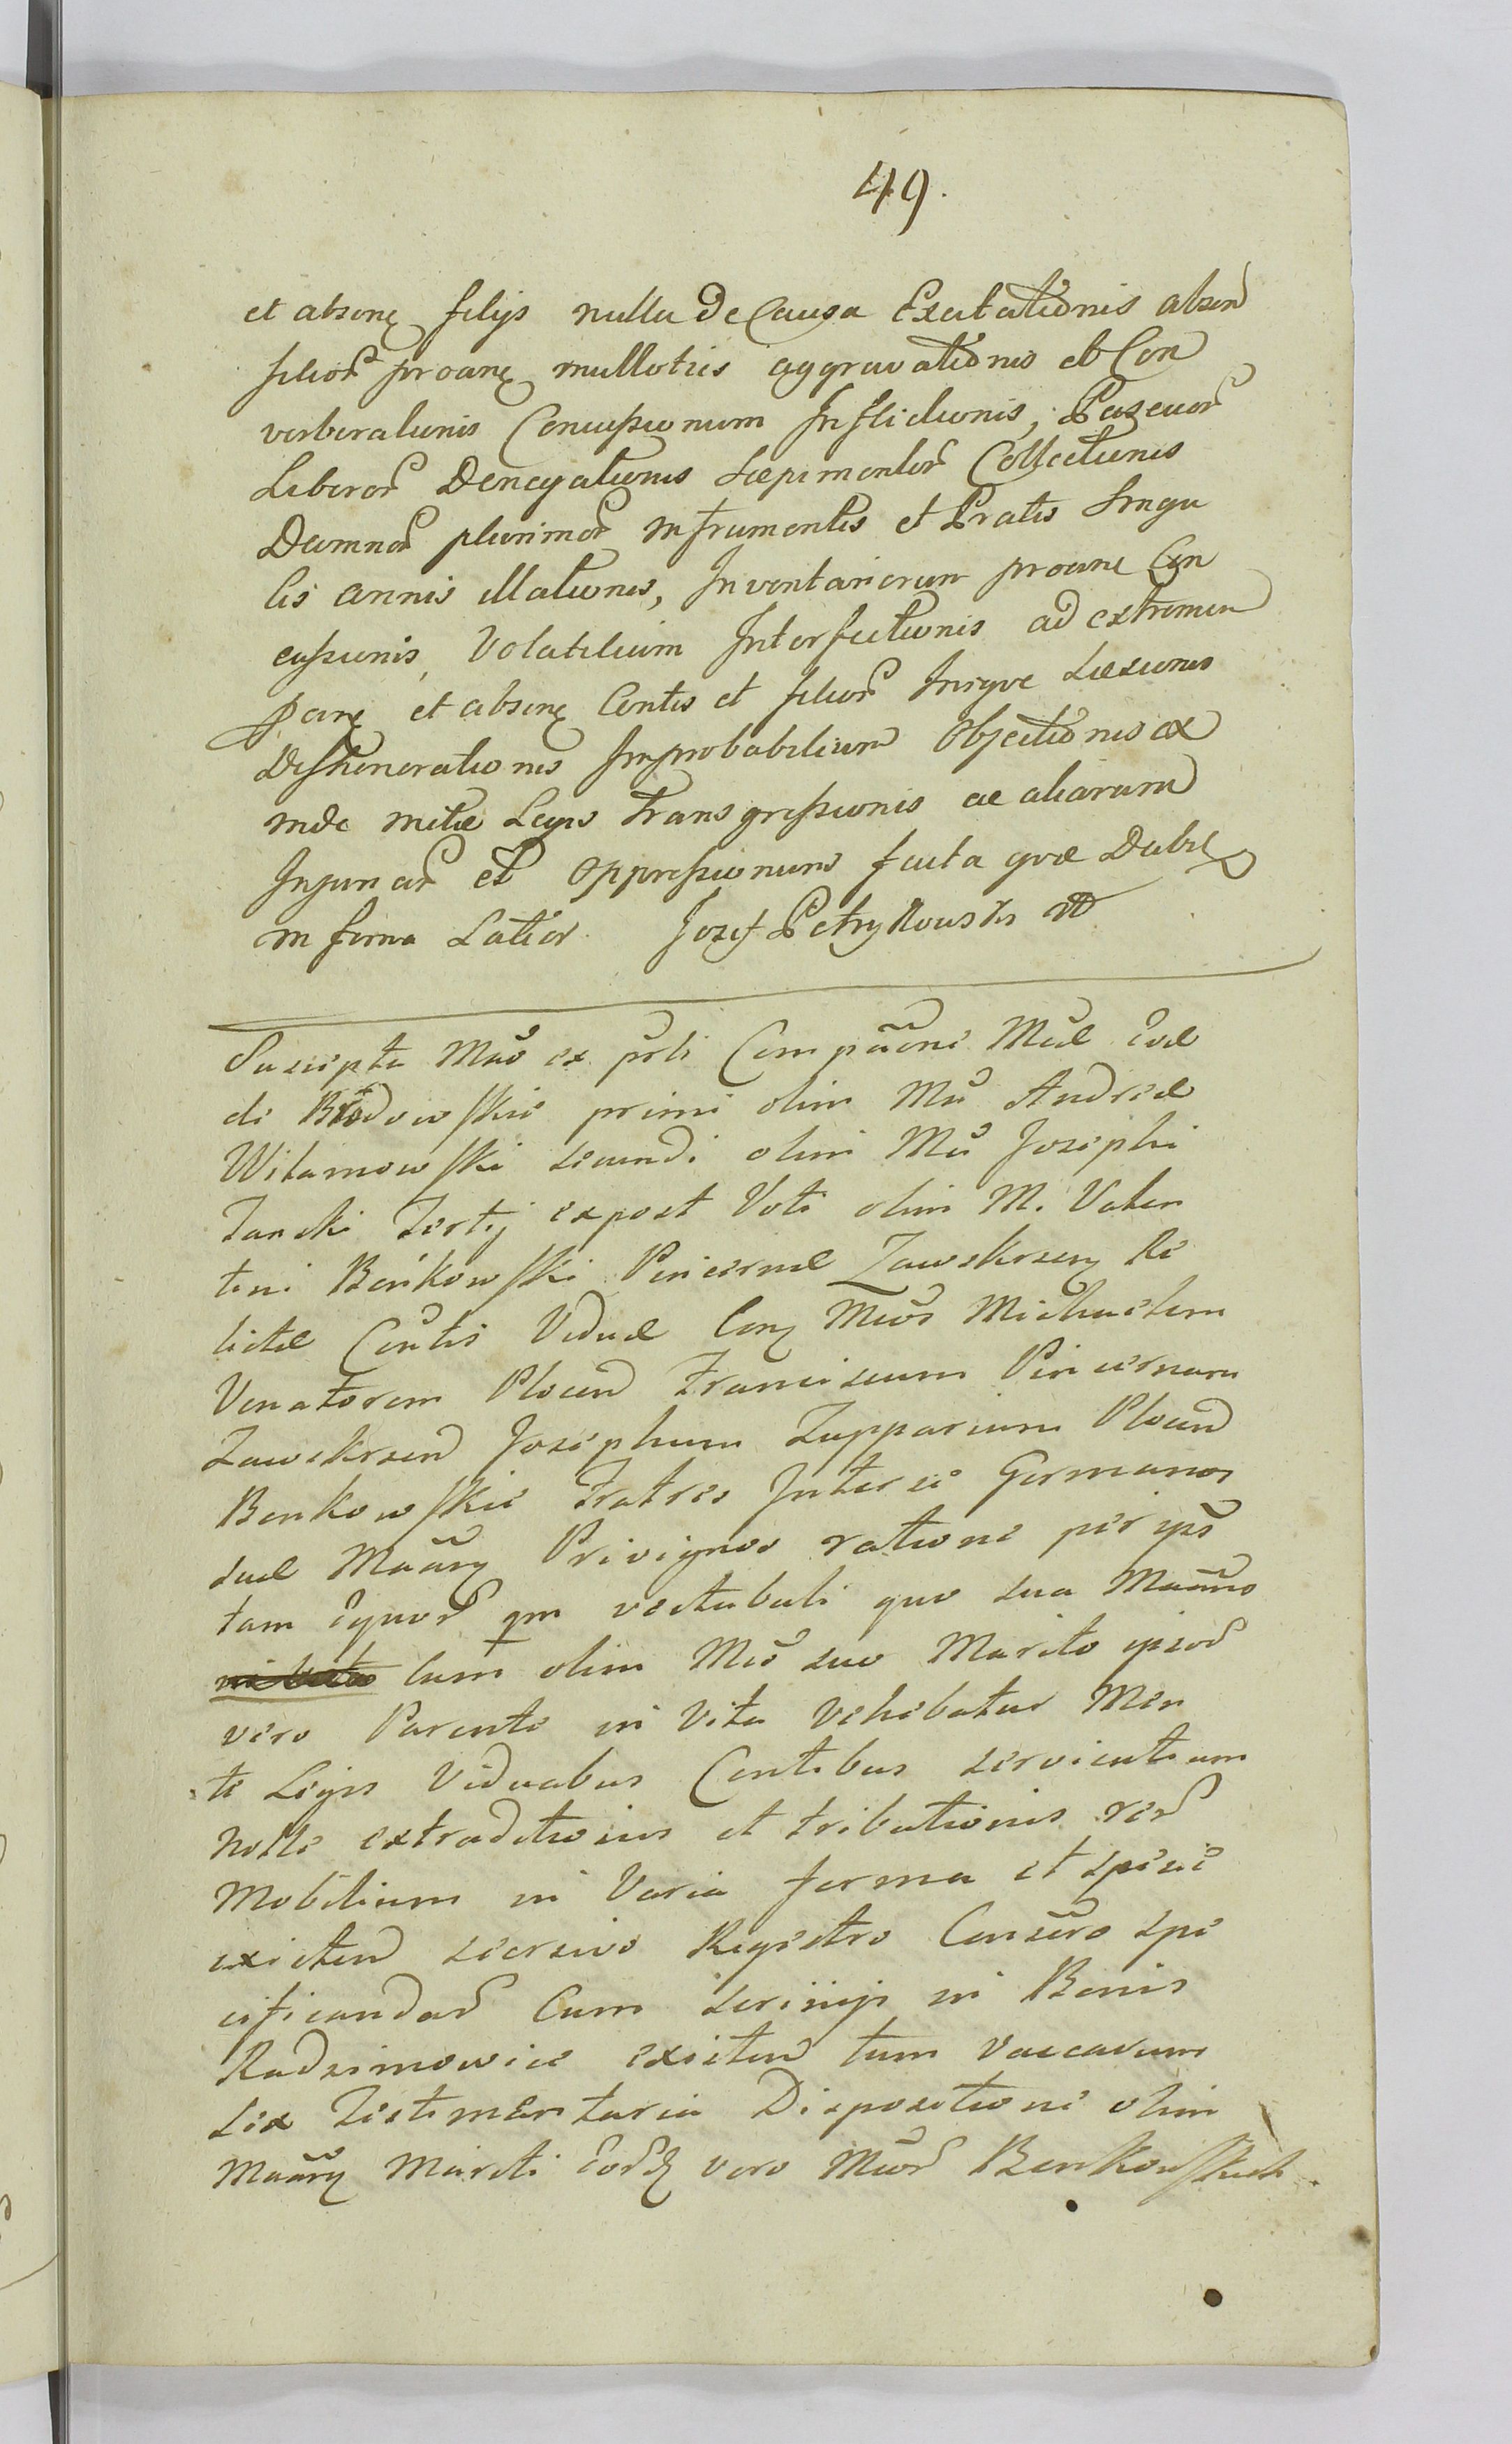 49.
et absenę filijs nulla de Causa Excitationis absen
filior proanę mullotiis aggravationis et Con
verberationis Concussionum Inflictionis, Pascuor
Liberor Denegationis Sæpimentor Collectionis
Damnor plurimor in frumentis et Pratis Singu
lis annis illationis, Inventariorum proanę Con
cussionis, Volatilium Interfectionis ad extremum
panę et absenę Contis et filior Insque Læsionis
Dishonorationis Improbabilium Objectionis ex
inde mitæ Legis transgressionis ac aliarum
Injuriar et Oppressionum facta quæ Dabit
in forma Latior. Jozef Petrykowski mp
Suscepta Mão ex prli Compãone Mæ Evæ
de Brodowskie primi olim Mci Andreæ
Wilamowski secundi olim Mci Josephi
Janski Tertij expost Voti olim M. Valen
tini Beńkowski Pincernæ Zawskrzeng Re
lictæ Contis Viduæ Conę Mcos Michaelem
Venatorem Plocen Franciscum Pincernam
Zawskrzen Josephum Zupparium Plocen
Benkowskie Fratres Inter se Germanos
suæ Mãnę Privignos ratione per ips
tam Equor qm vectabuli quo sua Mãnno
cum olim Mco suo Marito ipsor
vero Parente in Vita vehebatur Men
te Legis Viduabus Contibus servientium
nolle extraditionis et tributionis rer
Mobilium in Varia forma et specie
existen seorsivo Regestro Conscro spe
cificandar Cum scriniijs in Bonis
Radzimowice existen tum vaccarum
sex Testimentaria Dispositione olim
Mãnę Mariti Eordę vero Mcor Benkowskich